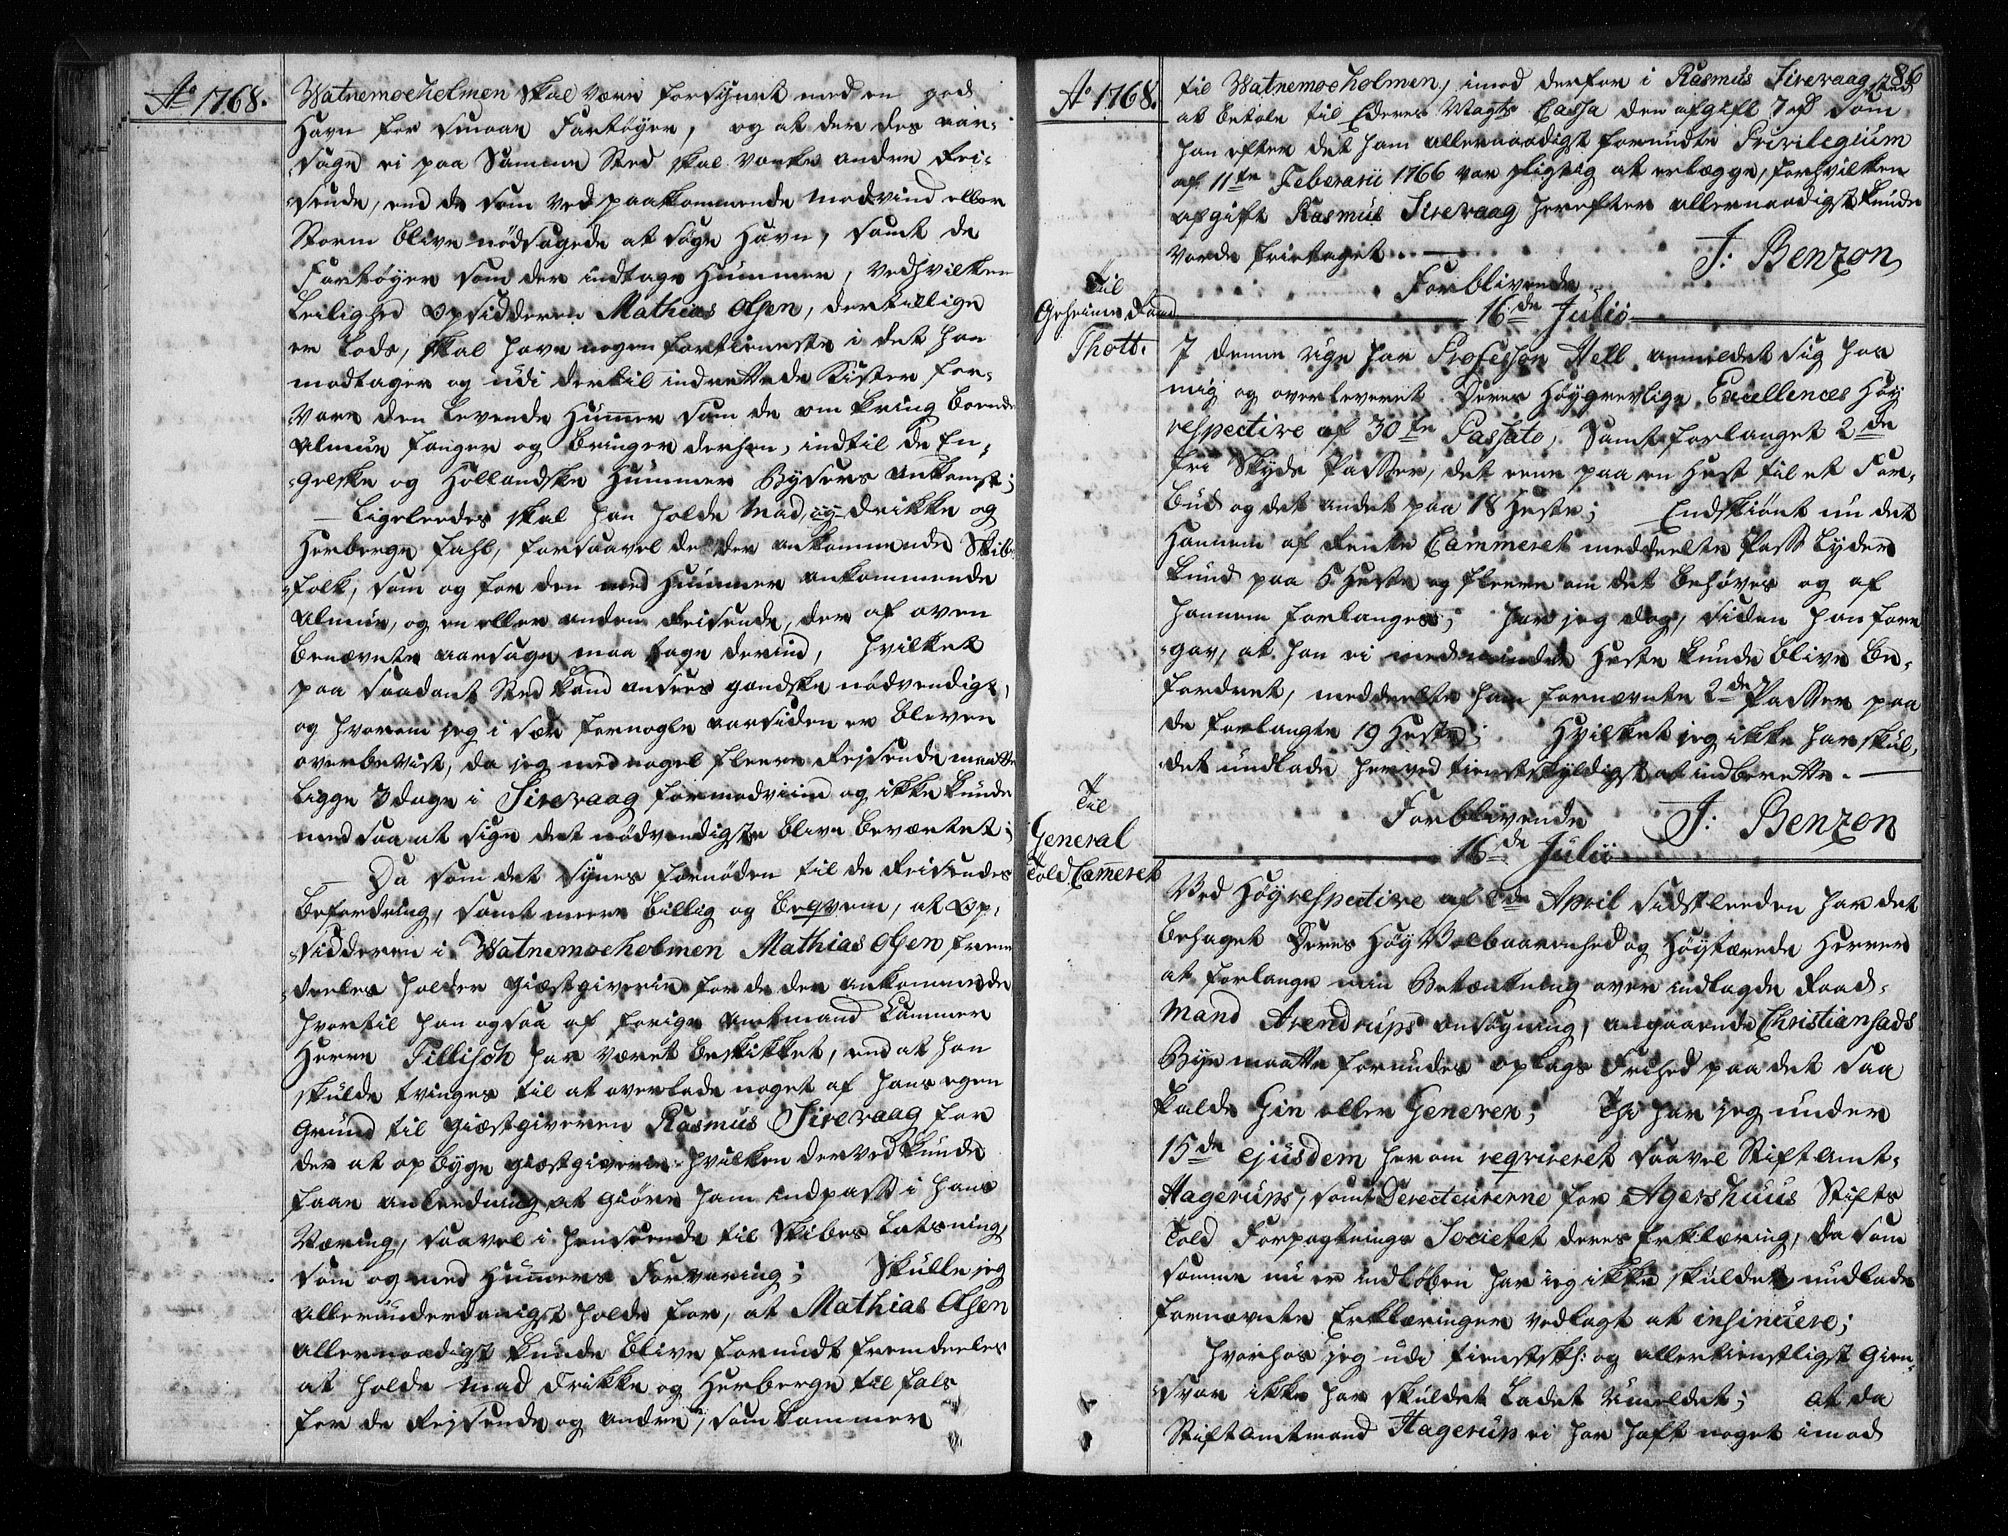 Ao 1768.
Watnemoeholmen skal være forsÿnet med en god
Havn for smaae Fartøyer, og at der des aar-
sage ei paa Samme Sted skal vanke andre Rei-
sende, end de som ved paakommende modvind eller
Storm blive nødsagede at søge Havn, samt de
Fartøyer som der indtage Hummer, ved hvilken
Leilighed Opsidderen Mathias Olsen, der tillige
er Lods, skal have nogen fortieneste i det han
modtager og udi dertil indrettede Kister for-
vare den levende Hummer som de omkring boende
Almue fanger og bringer derhen, indtil de En-
gelske og Hollandske Hummer Bÿsers ankomst;
Ligeledes skal han holde Mad, og drikke og
Herberge fahl, forsaavel de der ankommende Skibs-
folk, som og for den med Hummer ankommende
Almue, og en eller anden Reisende, der af oven
benævnte aarsage maa søge derind, hvilket
paa saadant Sted kand ansees gandske nødvendigt,
og hvorom jeg i sær for nogle aar siden er bleven
overbevist, da jeg med nogel fleere Reisende maatte
ligge 3 dage i Sirevaag for modviind og ikke kunde
med saa at sige det nødvendigste blive beværtet;
Da som det synes fornøden til de Reisendes
befordring, samt meere billig og beqvem, at Op-
sidderen i Watnemoeholmen Mathias Olsen frem
deeles holder Giæstgiverie for de der ankommende
hvortil han ogsaa af forige Amtmand Cammer
Herre Tillisch har været beskikket, end at han
skulde tvinges til at overlade noget af hans egen
Grund til Giæstgiveren Rasmus Sirevaag for
der at opbyge Giæstgiverie hvilken derved kunde
faae anleedning at giøre ham indpass i hans
Næring, saavel i henseende til Skibes Lotsning,
som og med Hummers Forvaring; Skulle jeg
allerunderdanigst holde for, at Mathias Olsen
allernaadigst kunde blive forundt fremdeeles
at holde Mad Drikke og Herberge til fals
for de Rejsende og andre, som kommer
Ao 1768.
286
til Watnemoeholmen, imod derfor i Rasmus Sirevaags sted
at betale til Ederes Mayts Cassa den afgift 7 rd som
han efter det ham allernaadigst forundte Privilegium
af 11te Feberarii 1766 var pligtig at erlægge, for hvilken
afgift Rasmus Sirevaag herefter allernaadigst kunde
vorde fritaget.
Forblivende J: Benzon
16de Julii
Til
Geheime Raad
Thott.
I denne uge har Professor Hell anmeldet sig hos
mig og overleveret Deres Høÿgrevlige Excellences Høÿ
respective af 30te Passato, Samt forlanget 2de
fri Skyds Passer, det eene paa en Hest til et For-
bud og det andet paa 18 Heste; Endskiønt nu det
Hannem af Rente Cammeret meddeelte Pass lyder
kund paa 5 Heste og fleere om det behøves og af
hannem forlanges; har jeg dog, siden han fore
gav, at han ei med mindre Heste kunde blive be-
fordret, meddeelte ham fornævnte 2de Passer paa
de forlangte 19 Heste; Hvilket jeg ikke har skul-
det undlade herved tienstskyldigst at indberette.
Forblivende J: Benzon
16de Julii
Til
General
Told Cammeret
Ved Høÿrespective af 2de April sidstleeden har det
behaget Deres HøÿVelbaarenhed og Høÿtærede Herrer
at forlange min Betænkning over indlagde Raad-
Mand Arendrups ansøgning, angaaende Christiansads
Bÿe maatte forundes oplags Frihed paa det saa
kalde Gin eller Genever; Thi har jeg under
15de ejusdem herom reqvireret saavel Stiftamt-
Hagerups, samt Directeurerne for Agershuus Stifts
Told Forpagtnings Societet deres Erklæring, Da som
samme nu er indløben har jeg ikke skuldet undlade
fornævnte Erklæringer vedlagt at insinuere;
Hvorhos jeg udi tienstskl: og allertienstligst Gien-
svar ikke har skuldet ladet umeldet; at da
Stiftamtmand Hagerup ei har haft noget imod